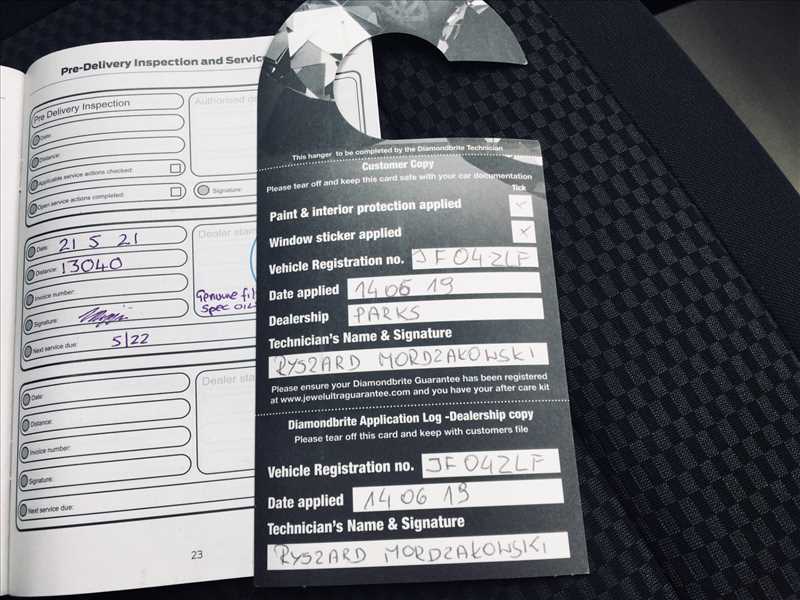 Pre-Delivery Inspection and Servic
Pre Delivery Inspection
Authorised de
Date:
Distance:
Applicable service actions checked:
Open service actions completed:
Signature:
Date: 21 5 21
Dealer stam
Distance: 13040
Invoice number:
Genuine fil
Spec oil
Signature:
Next service due: 5/22
Date:
Dealer sta
Distance:
Invoice number:
Signature:
Next service due:
23
This hanger to be completed by the Diamondbrite Technician
Customer Copy
Please tear off and keep this card safe with your car documentation
Tick
Paint & interior protection applied
Window sticker applied
Vehicle Registration no. JF04ZLF
Date applied 14 06 19
Dealership PARKS
Technician's Name & Signature
RYSZARD MORDZAKOWSKI
Please ensure your Diamondbrite Guarantee has been registered
at www.jewelultraguarantee.com and you have your after care kit
Diamondbrite Application Log -Dealership copy
Please tear off this card and keep with customers file
Vehicle Registration no. JF04ZLF
Date applied 14 06 19
Technician's Name & Signature
RYSZARD MORDZAKOWSKI